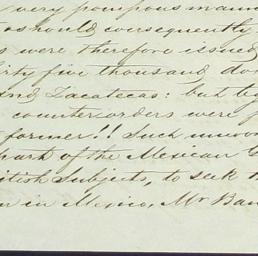 very pompous mann
should consequently
s were therefore issued
irty five thousand do
and Zacatecas: but by
counterorders were f
former!! Such unwor
part of the Mexican G
itish Subjects, to seek t
n in Mexico, Mr Ban